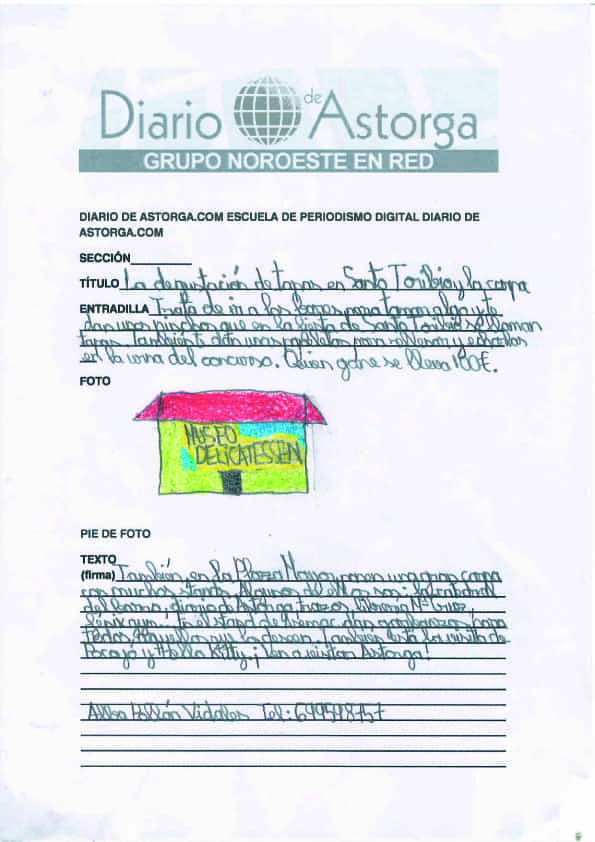 Diario de Astorga
GRUPO NOROESTE EN RED
DIARIO DE ASTORGA.COM ESCUELA DE PERIODISMO DIGITAL DIARIO DE
ASTORGA.COM
SECCIÓN
TÍTULO La degustación de tapas en Santo Toribio y la carpa
ENTRADILLA Trata de ir a los bares para tomar algo y te
dan unos pinchos que en la fiesta de Santo Toribio se llaman
tapas. También te dan unas papeletas para rellenar y echarlas
en la urna del concurso. Quien gane se lleva 100€.
FOTO
MUSEO
DELICATESSEN
PIE DE FOTO
TEXTO
(firma) También, en la Plaza Mayor ponen una gran carpa
con muchos stands. Algunos de ellos son:
del diario de Astorga, trazos, librería Nª Cruz,
fénix gym, el stand de dan para
todos aquellos que lo deseen. También está la visita de
Pocoyó y Hello Kitty. ¡Ven a visitar Astorga!
Alba Vidales Tel: 699598757